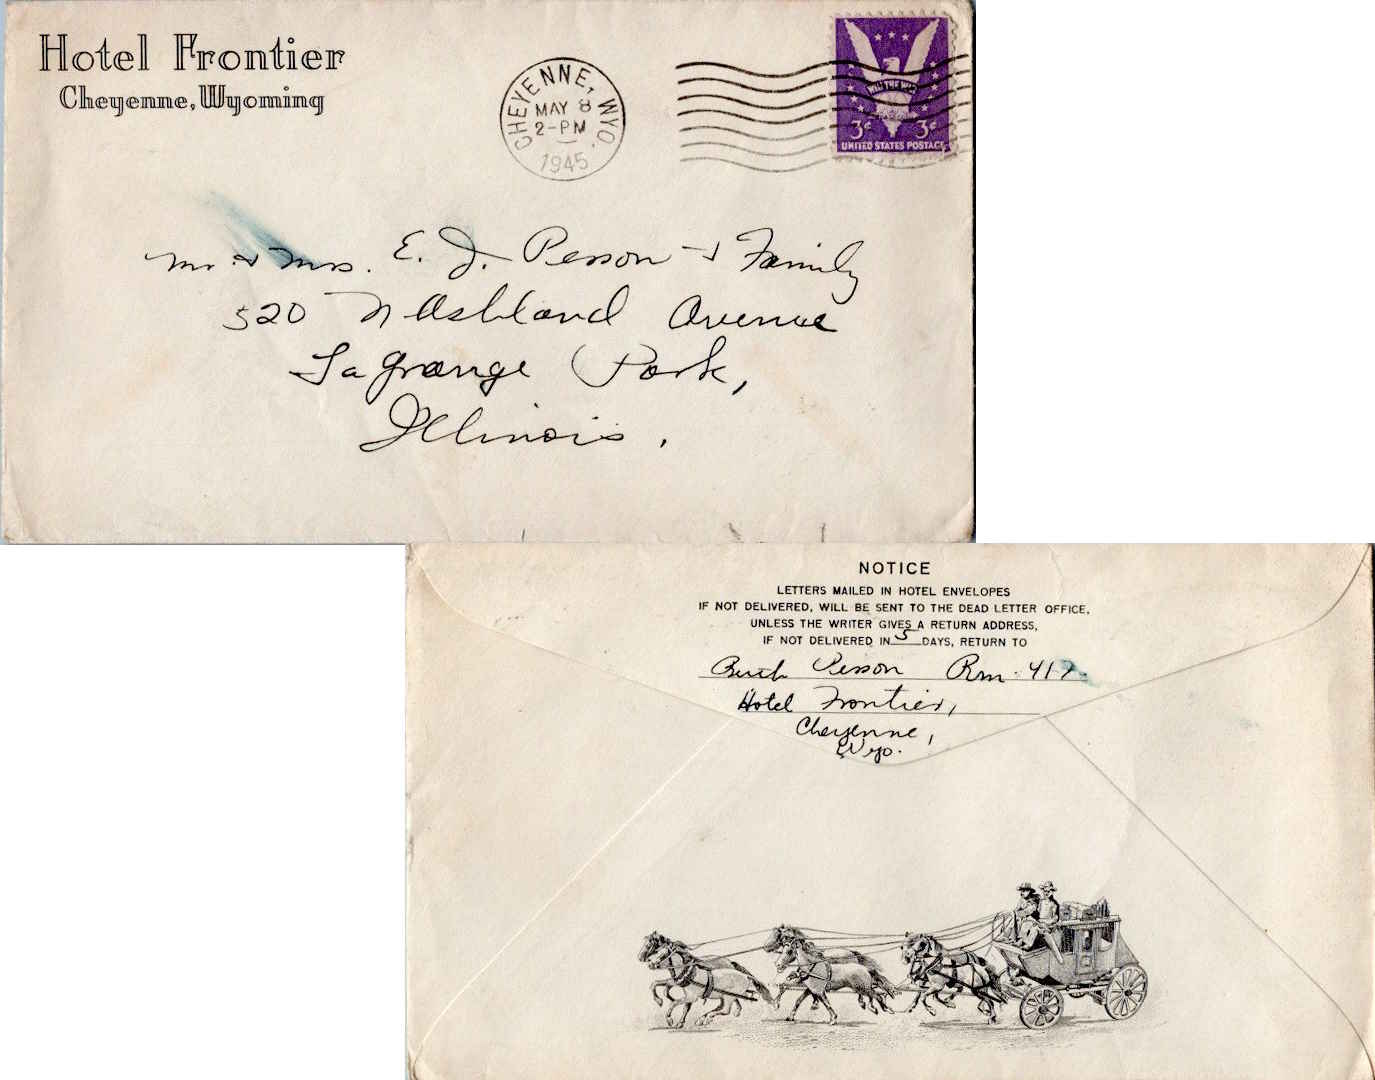 Hotel Frontier
Cheyenne, Wyoming
CHEYENNE, WYO.
MAY 8
2-PM
1945
WIN THE WAR
3¢ 3¢
UNITED STATES POSTAGE
Mr. & Mrs. E. J. Persson & Family
520 N Ashland Avenue
La Grange Park,
Illinois.
NOTICE
LETTERS MAILED IN HOTEL ENVELOPES
IF NOT DELIVERED, WILL BE SENT TO THE DEAD LETTER OFFICE,
UNLESS THE WRITER GIVES A RETURN ADDRESS,
IF NOT DELIVERED IN 5 DAYS, RETURN TO
Persson Rm. 417
Hotel Frontier,
Cheyenne,
Wyo.